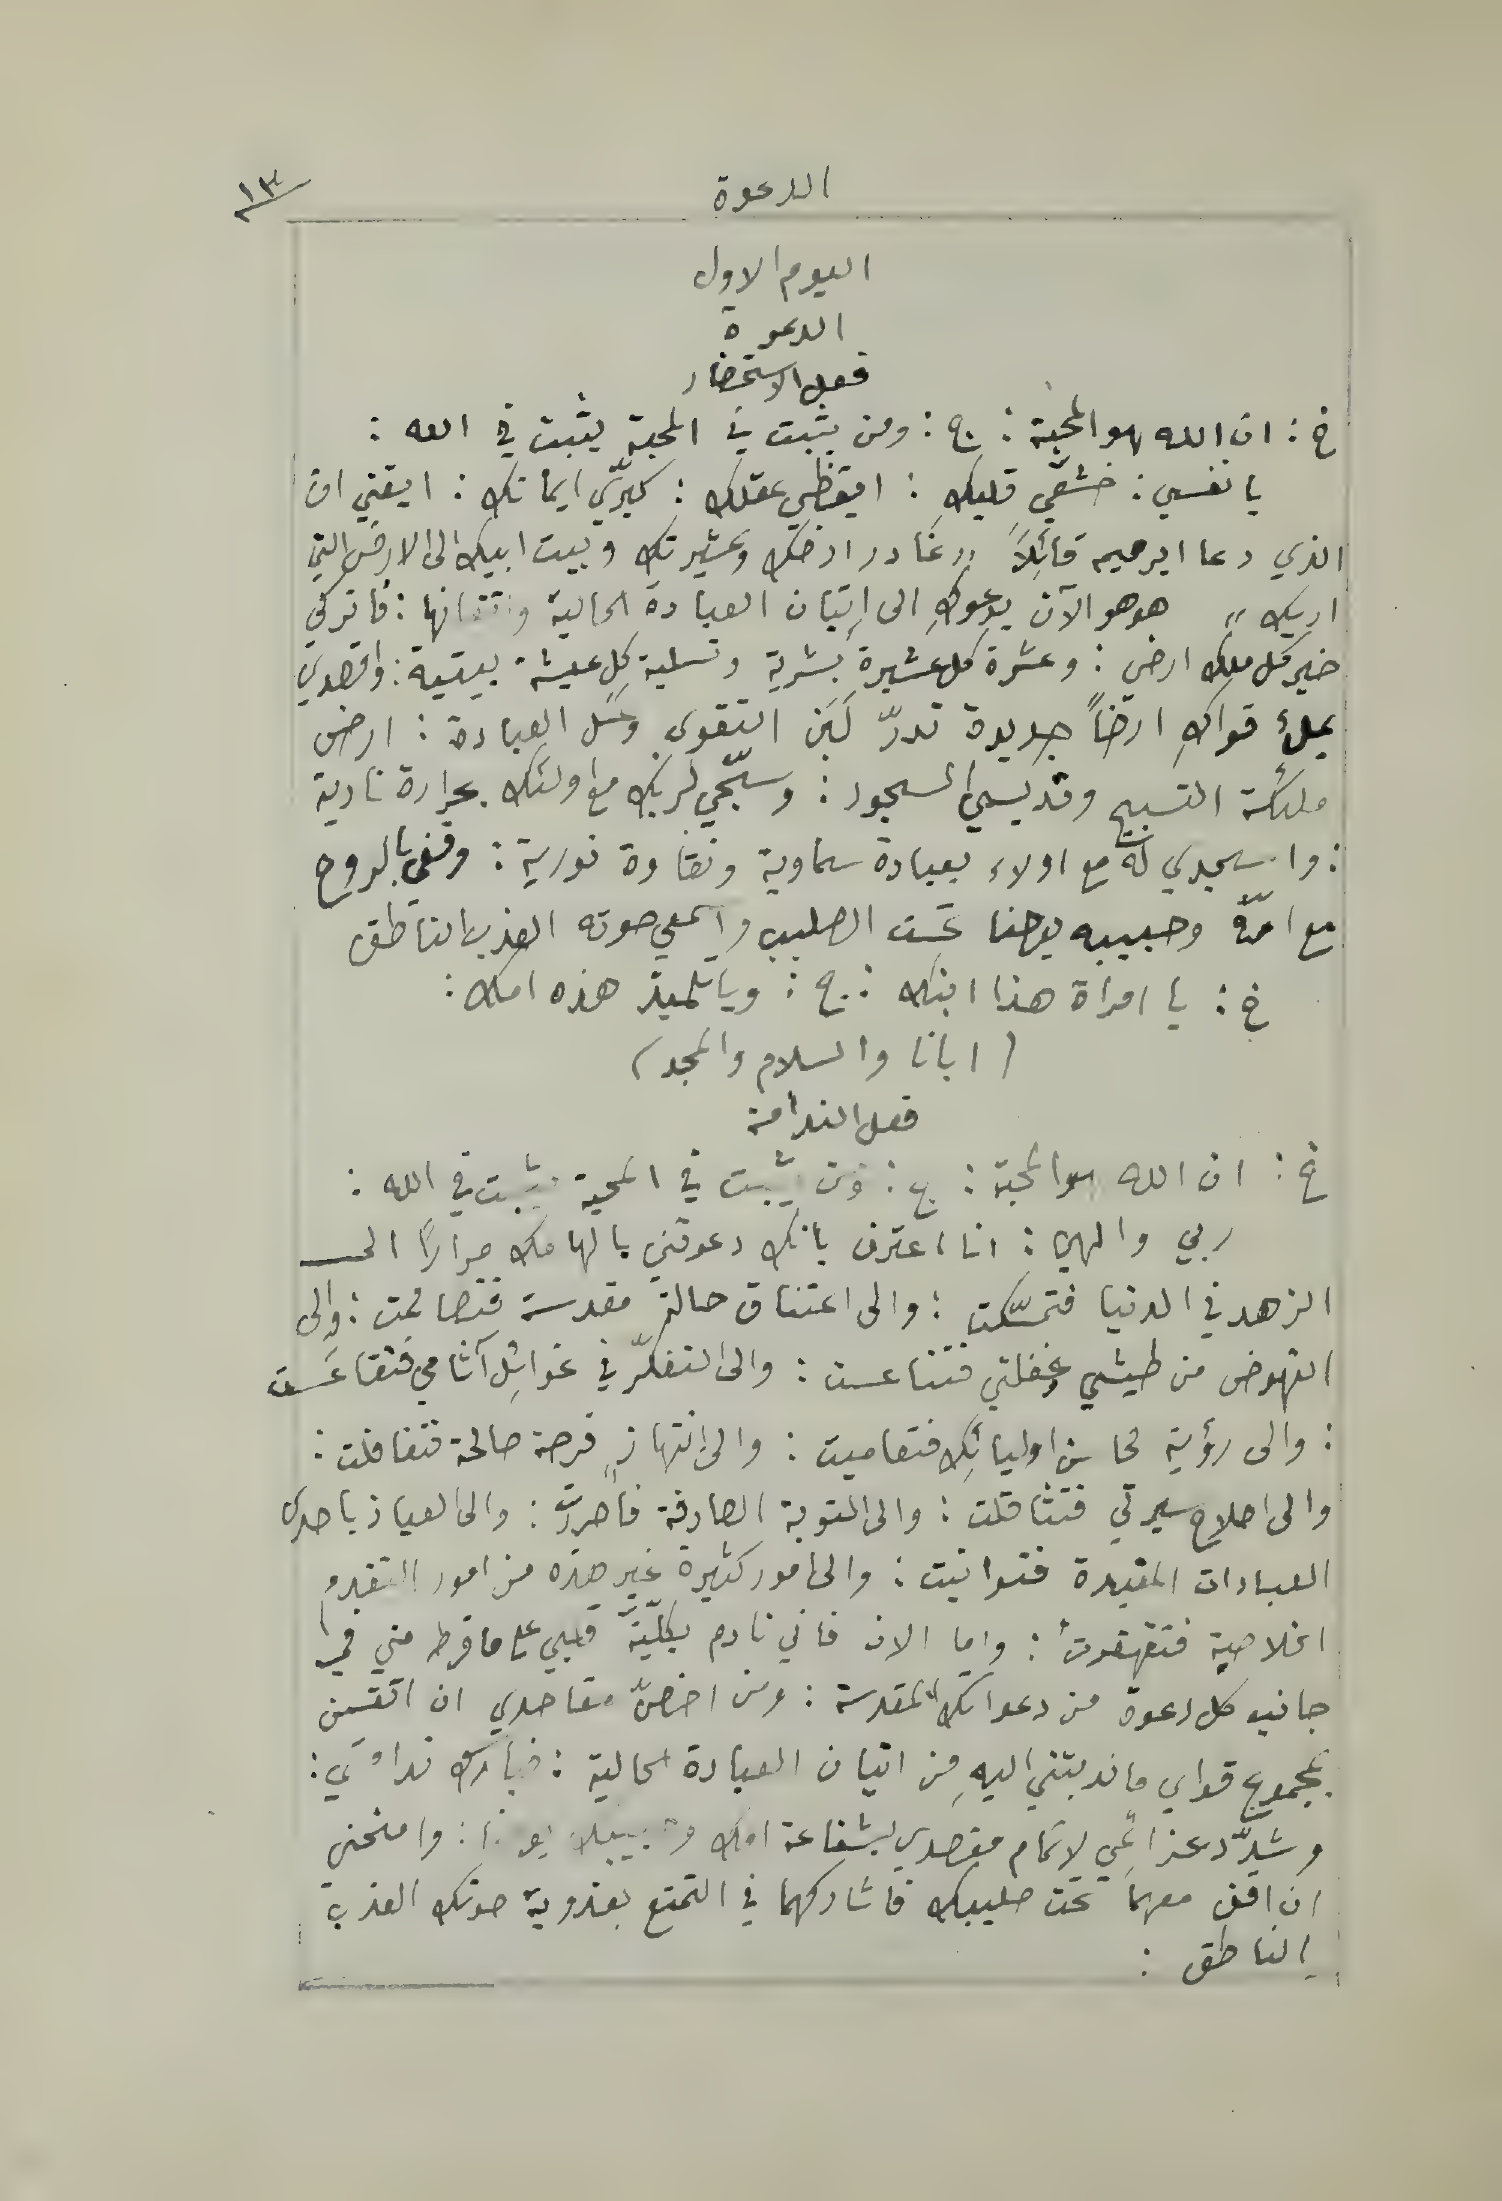 الدعوة
١٣
اليوم الاول
الدعوة
فعل الاستحضار
خ : ان الله هو المحبة : ج : ومن يثبت في المحبة يثبت في الله :
يا نفسي : خشّعي قلبكِ : ايقظي عقلك : كبّري ايمانك : ايقني ان
الذي دعا ابرهيم قائلاً „ غادر ارضك وعشيرتك وبيت ابيك الى الارض التي
اريك „ هو هو الآن يدعوكِ الى اتيان العبادة الحالية : فاتركي
خير كل ملك ارضي : وعشرة كل عشيرة بشرية وتسلية كل عيشة بيتية : واقصدي
بملءِ قواكِ ارضاً جديدة تدرّ لبن التقوى وعسل العبادة : ارض
ملئكة التسبيح وقديسي السجود : وسبّحي لربك مع اولئك بحرارة نارية
: واسجدي له مع اولاء بعبادة سماوية ونقاوة نورية : وقفي بالروح
مع امّه وحبيبه يوحنا تحت الصليب واسمعي صوته العذب الناطق
خ : يا امراة هذا ابنك : ج : ويا تلميذ هذه امك :
( ابانا والسلام والمجد )
فعل الندامة
خ : ان الله هو المحبة : ج : فمن يثبت في المحبة يثبت في الله :
ربي والهي : انا اعترف بانك دعوتني بالهامك مراراً الى
الزهد في الدنيا فتمسّكت : والى اعتناق حالة مقدسة فتصاممت : والى
النهوض من طيشي وغفلتي فتناعست : والى التفكّر في غوائل آثامي فتقاعست
: والى رؤية محاسن اوليائك فتعاميت : والى انتهاز فرصة صالحة فتغافلت :
والى اصلاح سيرتي فتثاقلت : والى التوبة الصادقة فاصررت : والى العياذ باحدى
العبادات المفيدة فتوانيت : والى امور كثيرة غير هذه من امور التقدم
الخلاصية فتقهقرت : واما الان فاني نادم بكلّية قلبي على ما فرط مني في
جانب كل دعوة من دعواتك المقدسة : ومن اخصّ مقاصدي ان اتقن
بمجموع قواي ما ندبتني اليه من اتيان العبادة الحالية : فبارك ندامتي :
وشدّد عزائمي لاتمام مقصدي بشفاعة امك وحبيبك يوحنا : وامنحني
ان اقف معهما تحت صليبك فاشاركهما في التمتع بعذوبة صوتك العذب
الناطق :